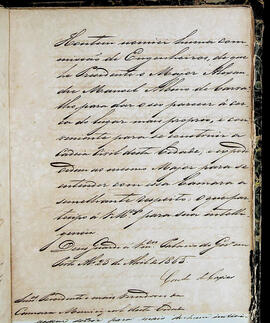 Hontem nomiei huma com
missão de Engenheiros, de que
he Presidente o Major Alexan
dre Manoel Albino de Carva
lho para dar o seu parecer á cer
ca do lugar mais proprio, e con
veniente para se construir a
Cadeia Civil desta Cidade, e expedi
ordem ao mesmo Major para se
entender com essa Camara a
semelhante respeito: o que par
ticipo á V. Mces para sua intelli
gencia
Deos Guarde a V. Mces Palacio do Gover
no 25 de Abril de 1863
Conde de
Snr Presidente e mais Vereadores da
Camara Municipal desta Cidade